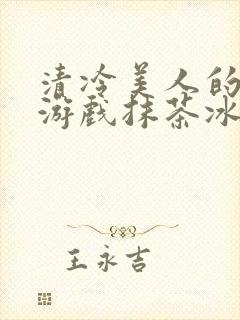 清冷美人的
游戏抹茶冰
王永吉